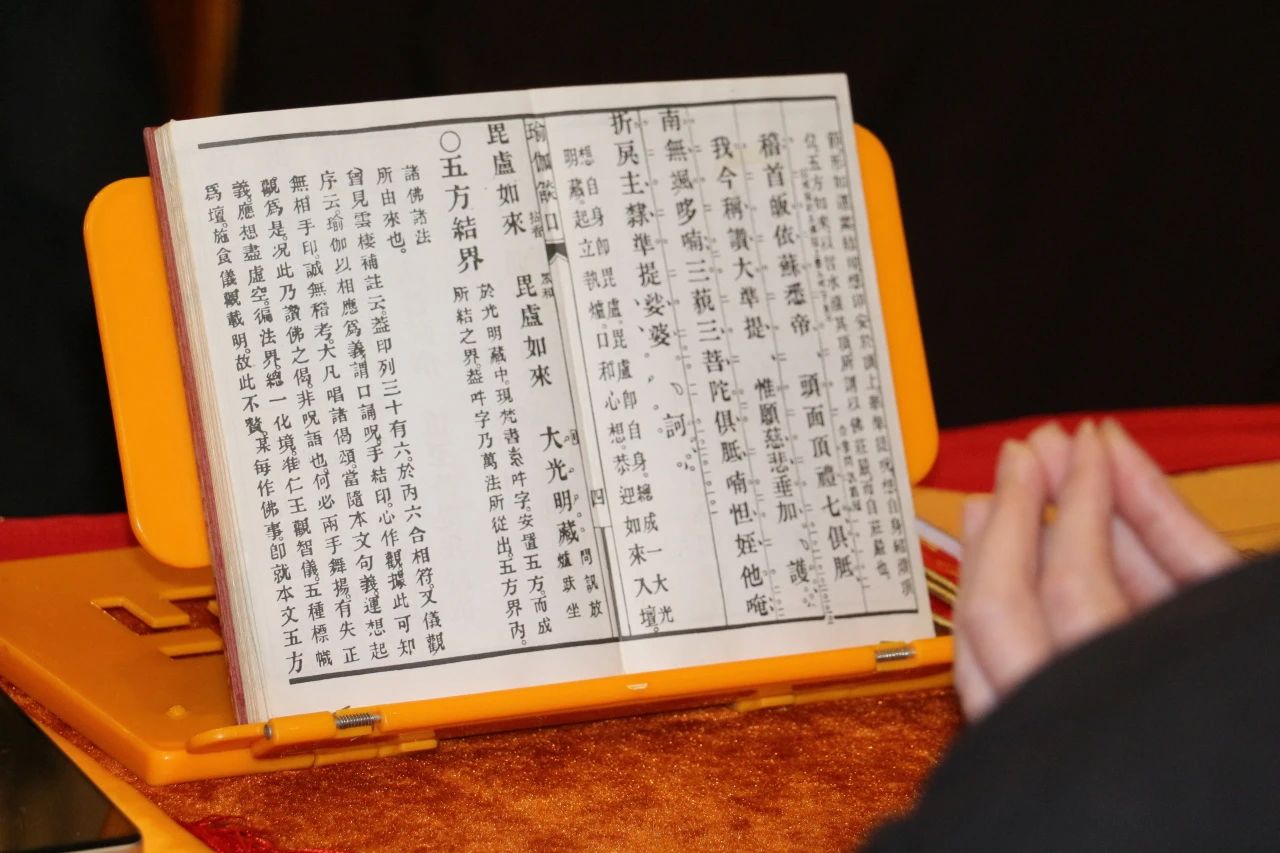 五方如來。以智水灌其頂所謂以佛莊嚴而自莊嚴也。
稽首皈依蘇悉帝 頭面頂禮七俱胝
我今稱讚大準提 惟願慈悲垂加護。
南無颯哆喃三藐三菩陀俱胝喃怛姪他唵
折戾主隸準提娑婆訶
想。自身卽毘盧。毘盧卽自身。總成一大光
明藏。起立執爐。口和心想。恭迎如來入壇。
瑜伽燄口 四
毘盧如來 衆和 毘盧如來 大光明藏 問訊放爐趺坐
○五方結界 於光明藏中。現梵書吽字。安置五方。而成
所結之界。葢吽字乃萬法所從出。五方界內。
諸佛諸法
所由來也。
曾見雲棲補註云。葢印列三十有六。於丙六合相符。又儀觀
序云。瑜伽以相應爲義。謂口誦呪。手結印。心作觀。據此可知
無相手印。誠無稽考。大凡唱諸偈頌。當隨本文句義。運想起
觀爲是。况此乃讚佛之偈。非呪語也。何必兩手舞揚。有失正
義。應想盡虛空。徧法界。總一化境。准仁王觀智儀。五種標幟
爲壇。施食儀觀載明。故此不贅。某每作佛事。卽就本文五方